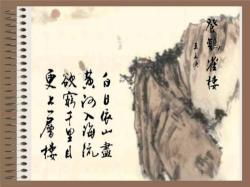 登鹳雀楼
王之涣
白日依山盡
黄河入海流
欲窮千里目
更上一層楼